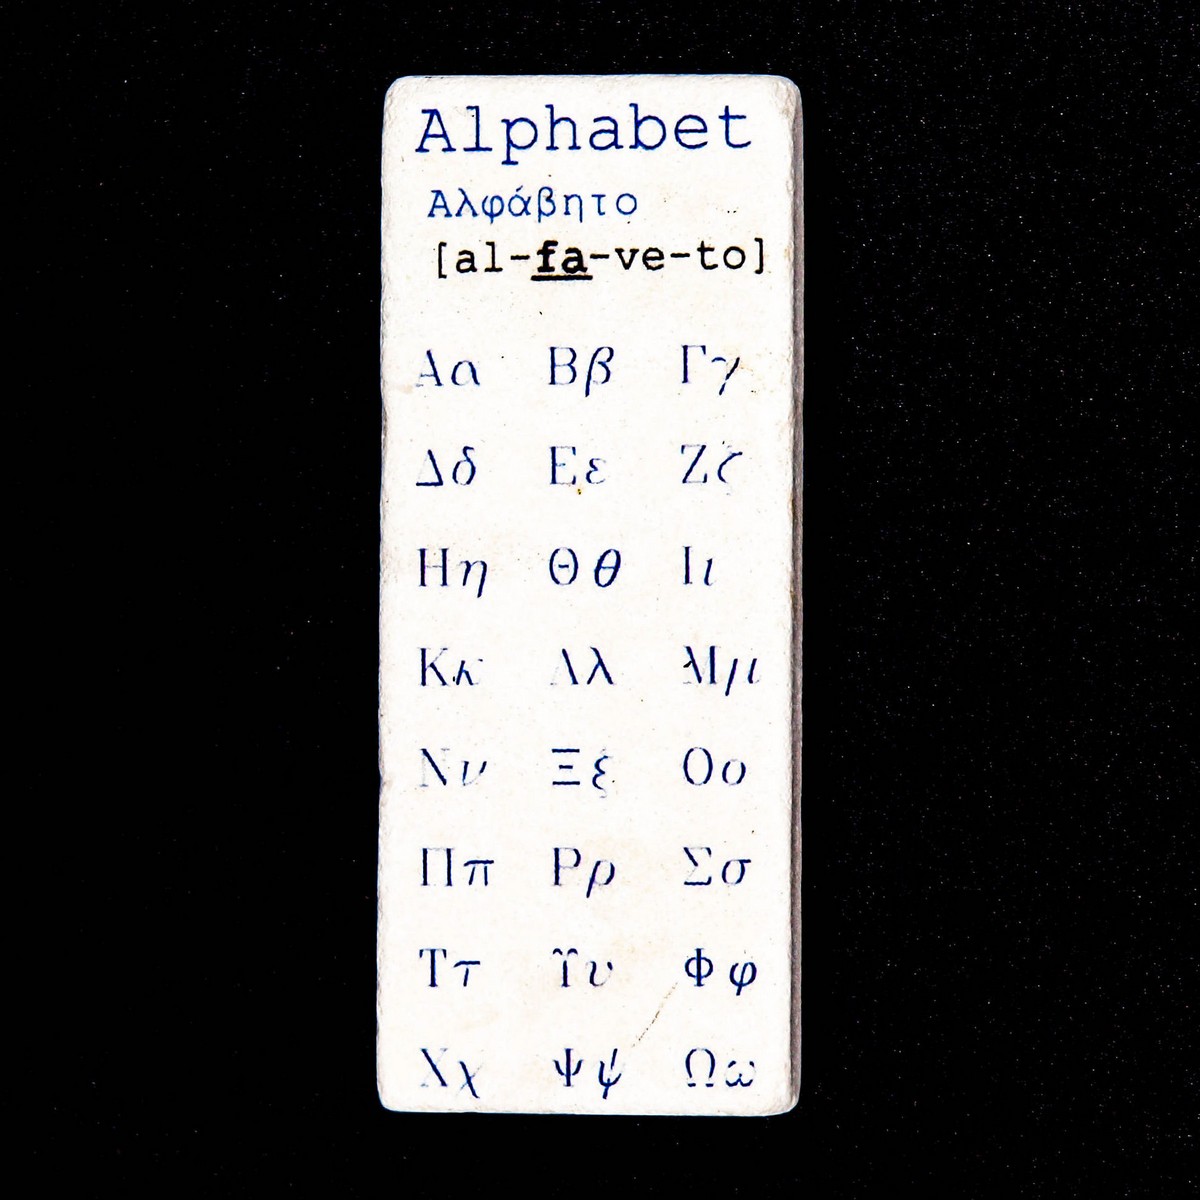 Alphabet
Αλφάβητο
[al-fa-ve-to]
Αα Ββ Γγ
Δδ Εε Ζζ
Ηη Θθ Ιι
Κκ Λλ Μμ
Νν Ξξ Οο
Ππ Ρρ Σσ
Ττ ϒυ Φφ
Χχ Ψψ Ωω